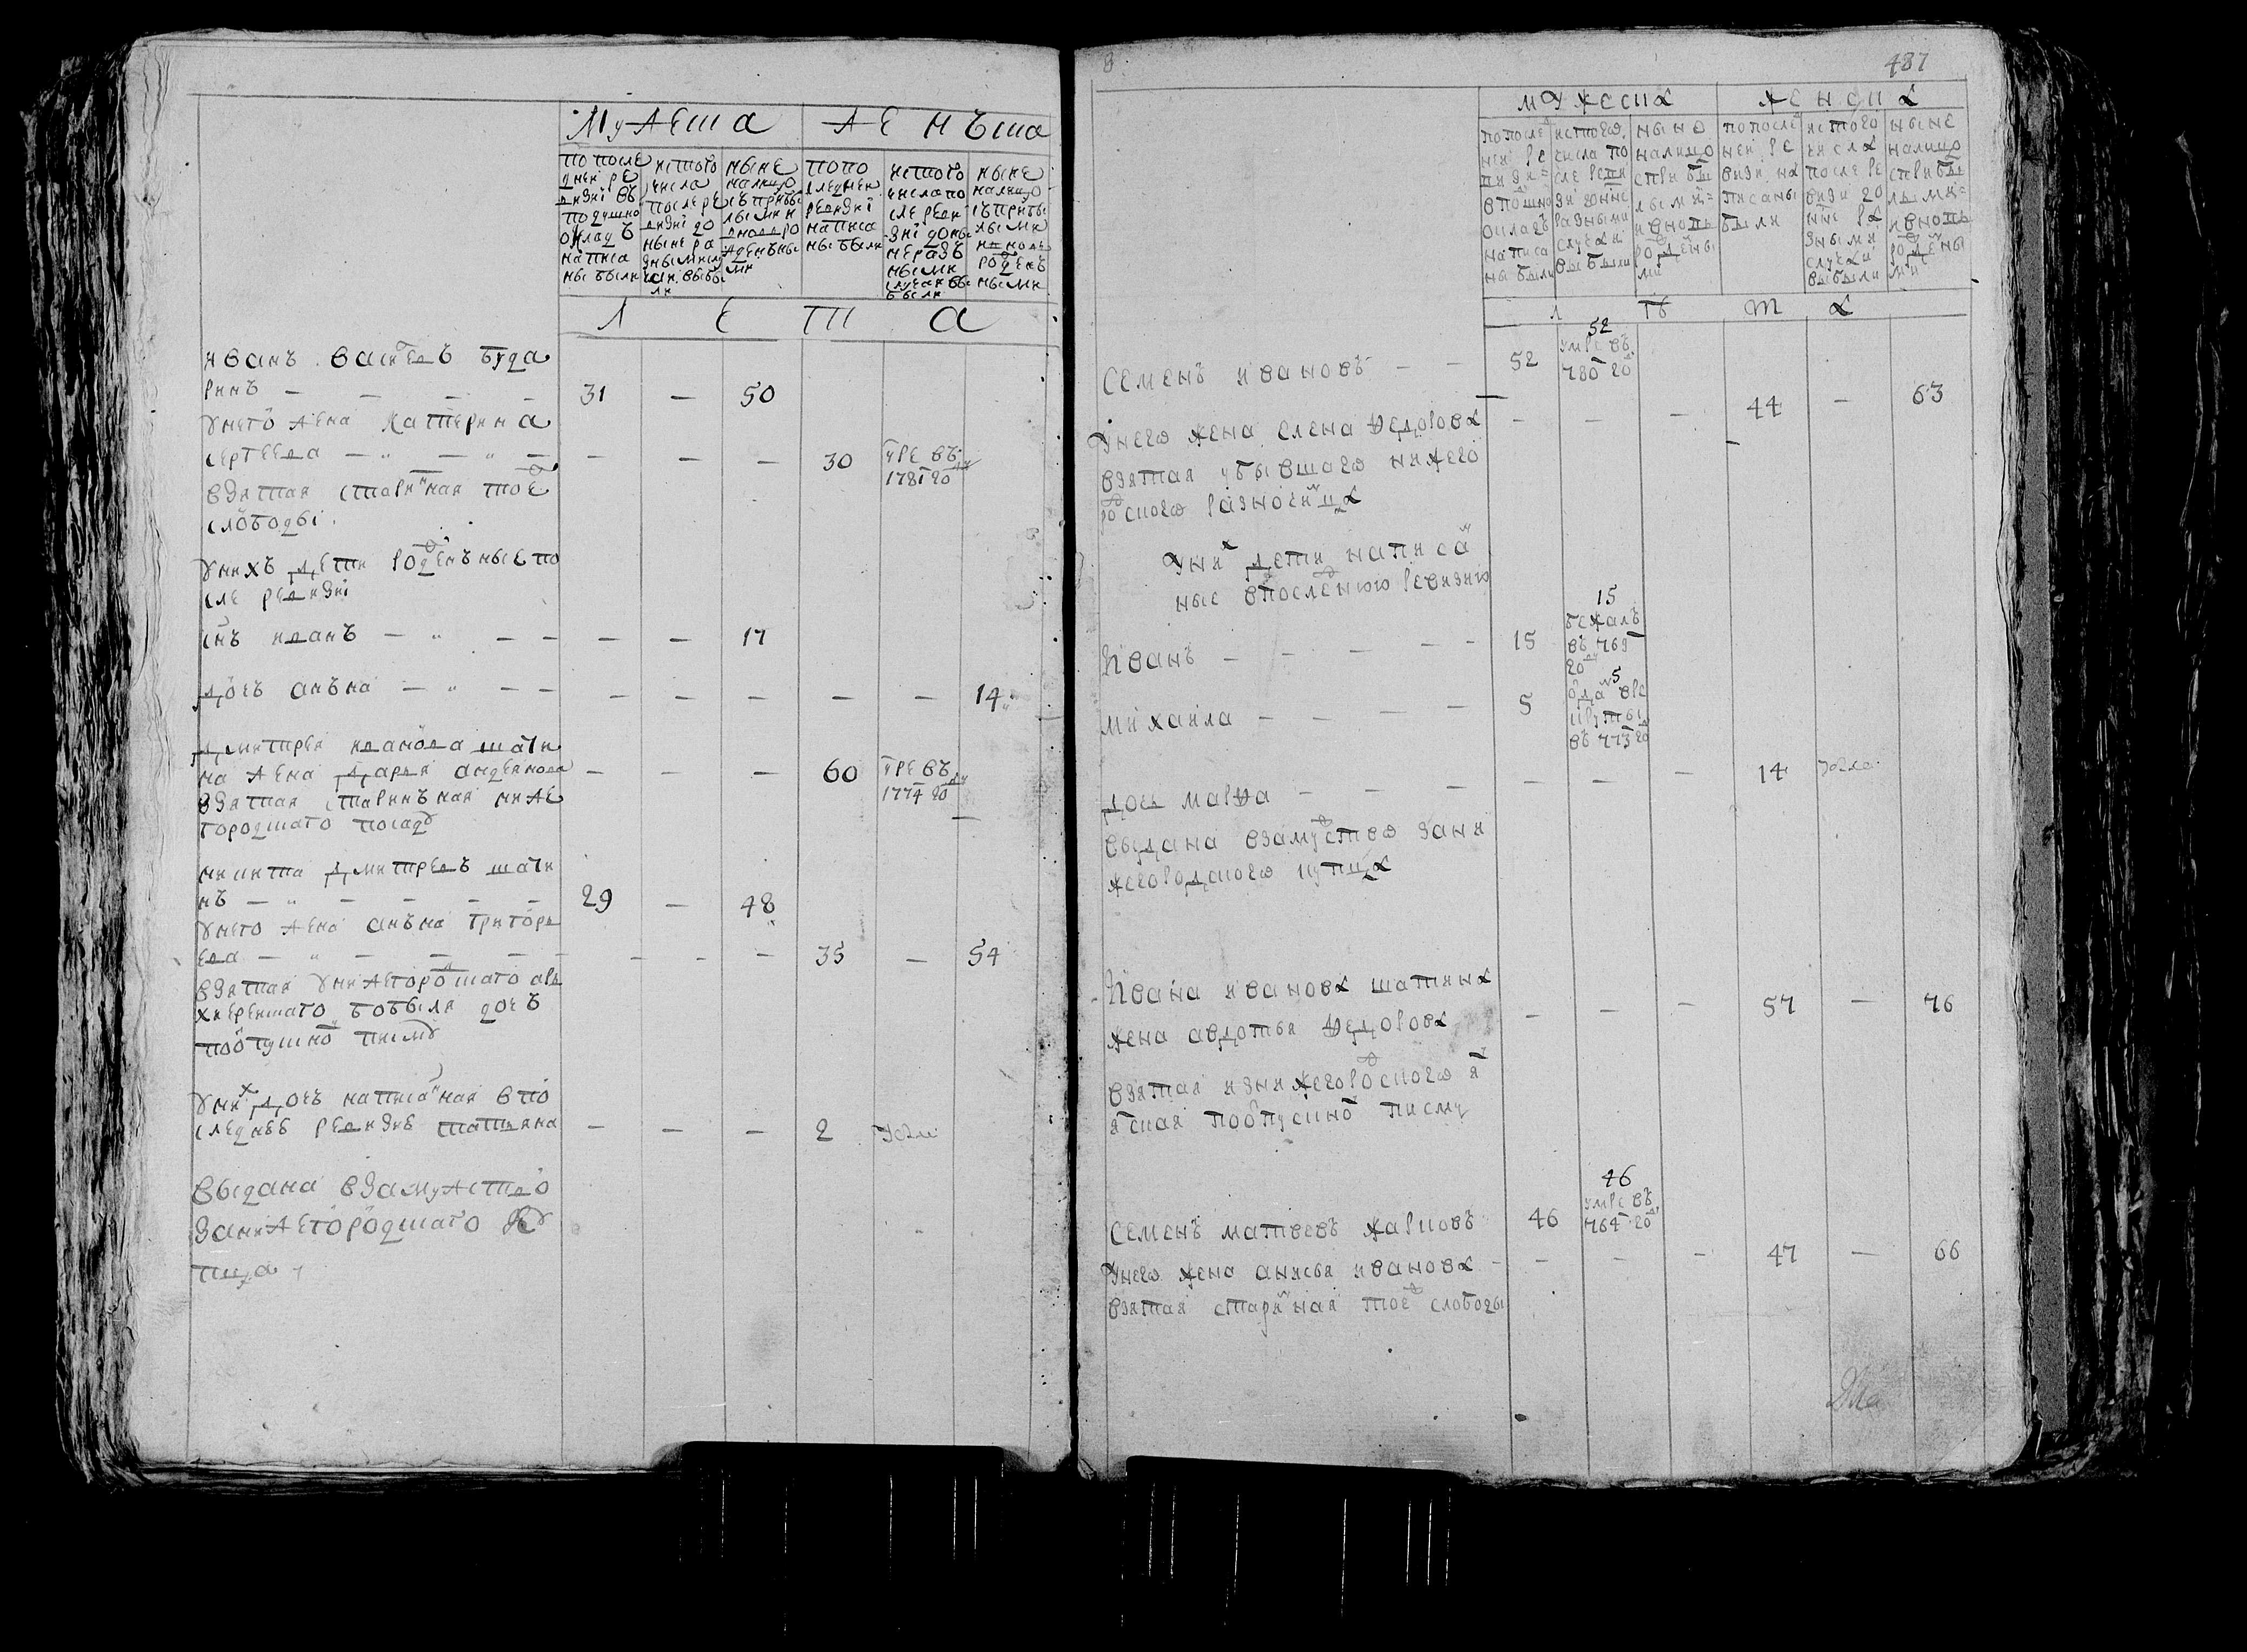 Мужеска
Женъска
по после
дней ре
визиi въ
подушно
окладъ
написа
ны были
ис того
числа
после ре
визиi до
ныне ра
зными слу
чаи выбы
ли
ныне
налицо
съ прибы
лыми и
вновь ро
жденъны
ми
по по
следней
ревизиi
написа
ны были
ис того
числа по
сле реви
зиi до ны
не разъ
ными
случаи вы
были
ныне
налицо
съ прибы
лыми
и новь
рожденъ
ными
Л е т а
иванъ васильевъ буда
ринъ — — — — 31 — 50
у него жена катерина
сергеева — — — — — — 30 умре въ
1781 году
взятая старинная тое
слободы
у нихъ дети рожденъные по
сле ревизиi
сынъ иванъ — — — — — 17
дочь анъна — — — — — — — — 14
дмитрея иванова шати
на жена дарья андеянова — — — 60 умре въ
1774 году
взятая старинъная ниже
городцкаго посаду
никита дмитревъ шати
нъ — — — — — 29 — 48
у него жена анъна григорь
ева — — — — — — — — 35 — 54
взятая у нижегородцкаго арь
хиерейскаго бобыля дочь
по отпускному писму
у них дочь написанная в по
следней ревизиѣ татьяна — — — 2
выдана взамужство
за нижегородцкаго ку
пца
487
мужеска
женска
по после
ней ре
визи
в подушно
окладъ
написа
ны были
ис того
числа по
сле реви
зи до не
разными
случаи
выбыли
ныне
налицо
с прибы
лыми
и вновь
рожены
ми
по после
ней ре
визи на
писаны
были
ис того
числа
после ре
визи до
не ра
зными
случаи
выбыли
ныне
налицо
с прибы
лыми
и вновь
рожены
ми
л ѣ т а
52
семенъ ивановъ — — 52 умре въ
780 году
у него жена елена федорова — — — 44 — 63
взятая у бывшаго нижего
родского разночинца
у них дети написан
ные в последнюю ревизию
15
иванъ — — — — — 15 бежалъ
въ 769
году
5
михаила — — — — 5 отдан в ре
круты
въ 773 году
дочь марфа — — — — — — 14
выдана взамужство за ни
жегородского купца
ивана иванова шатина
жена авдотья федорова — — — 57 — 76
взятая из нижегородского
по отпускной писму
46
семенъ матвеевъ жарковъ 46 умре въ
764 году
у него жена анисья иванова — — — — 47 — 66
взятая старинная тое слободы